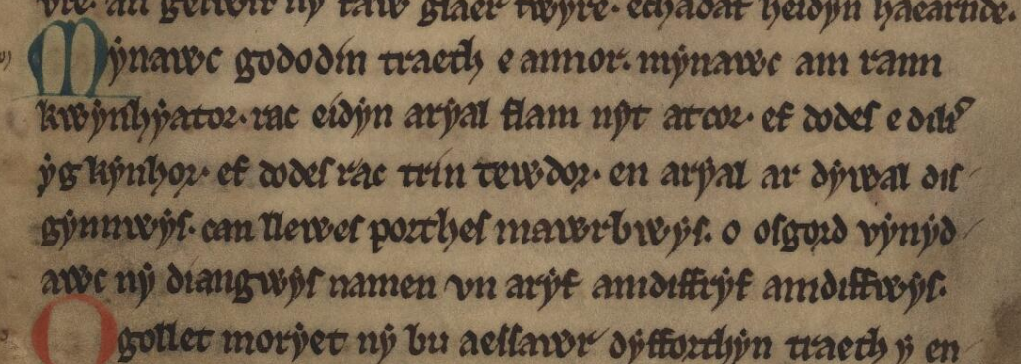 vre. an gelwir ny faw glaer fwyre. echadaf heidyn haearnde.
Mynawc gododin traeth e annor. mynawc am rann
kwynhyator. rac eidyn aryal flam nyt atcor. ef dodes e dilis
yg kynhor. ef dodes rac trin tewdor. en aryal ar dywal dis
gynnwys. can llewes porthes mawrbwys. o osgord vynyd
awc ny diangwys namen vn aryf amdiffryf amdiffwys.
O gollet moryet ny bu aessawr dyfforthyn traeth y en